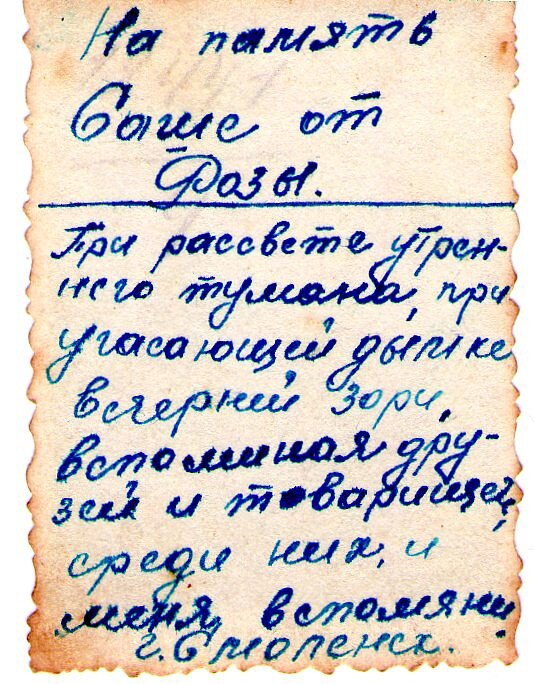 На память
Саше от
Розы.
При рассвете утрен-
него тумана, при
угасающей дымке
вечерней зори,
вспоминая дру-
зей и товарищей,
среди них, и
меня, вспомяни.
г. Смоленск.